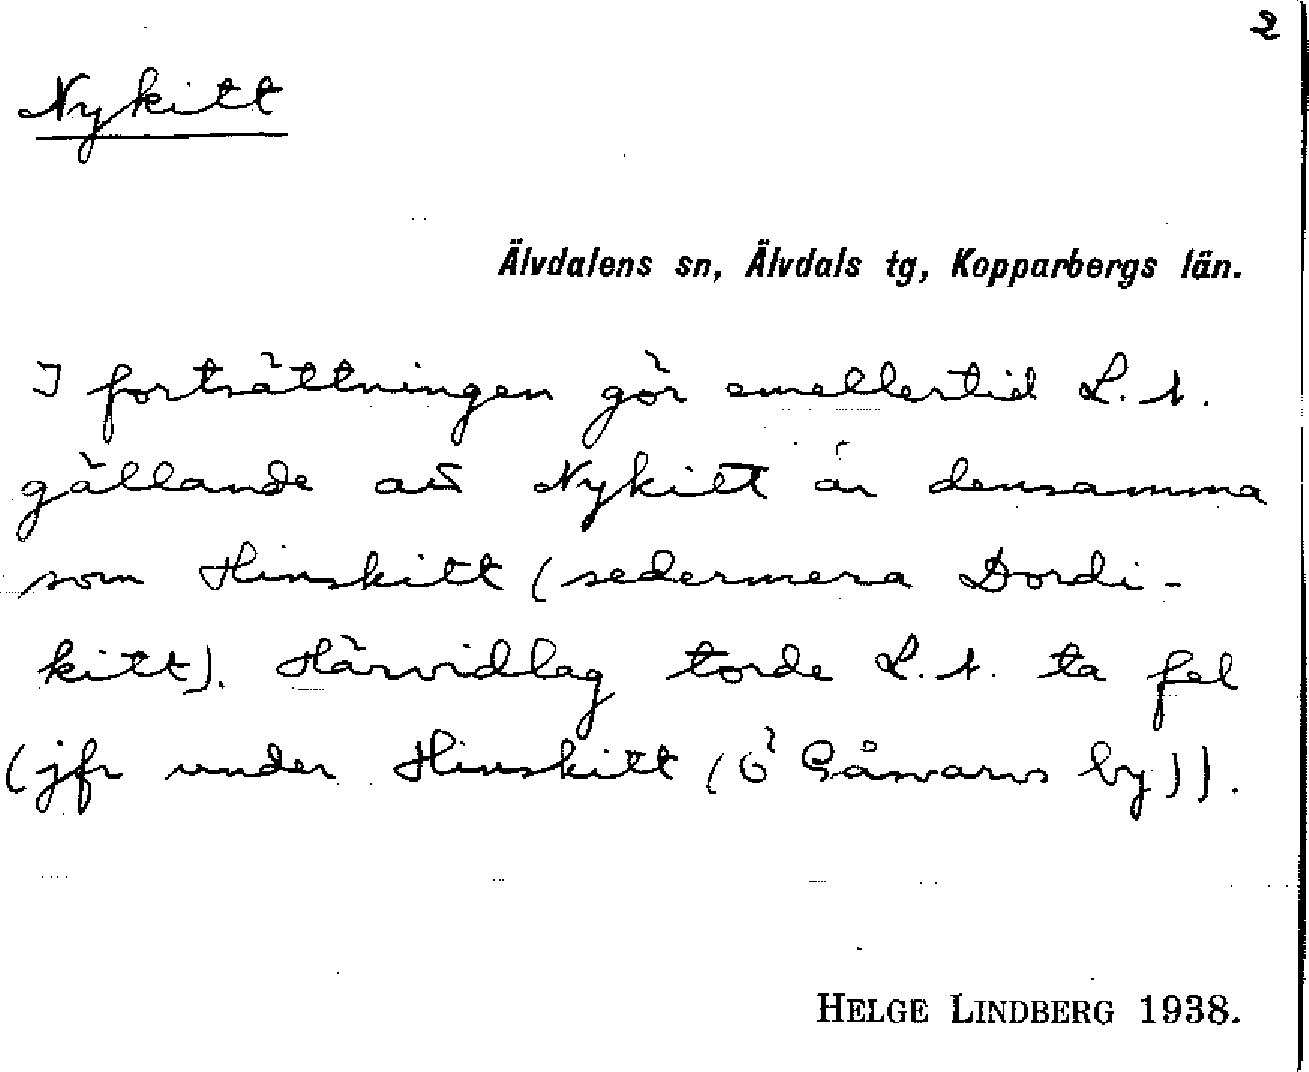 2
Nykitt
Älvdalens sn, Älvdals tg, Kopparbergs län.
I fortsättningen gör emellertid L. L.
gällande att Nykitt är densamma
som Hinskitt (sedermera Dordi-
kitt). Härvidlag torde L. L. ta fel
(jfr under Hinskitt (Ö Gåsvarvs by)).
HELGE LINDBERG 1938.